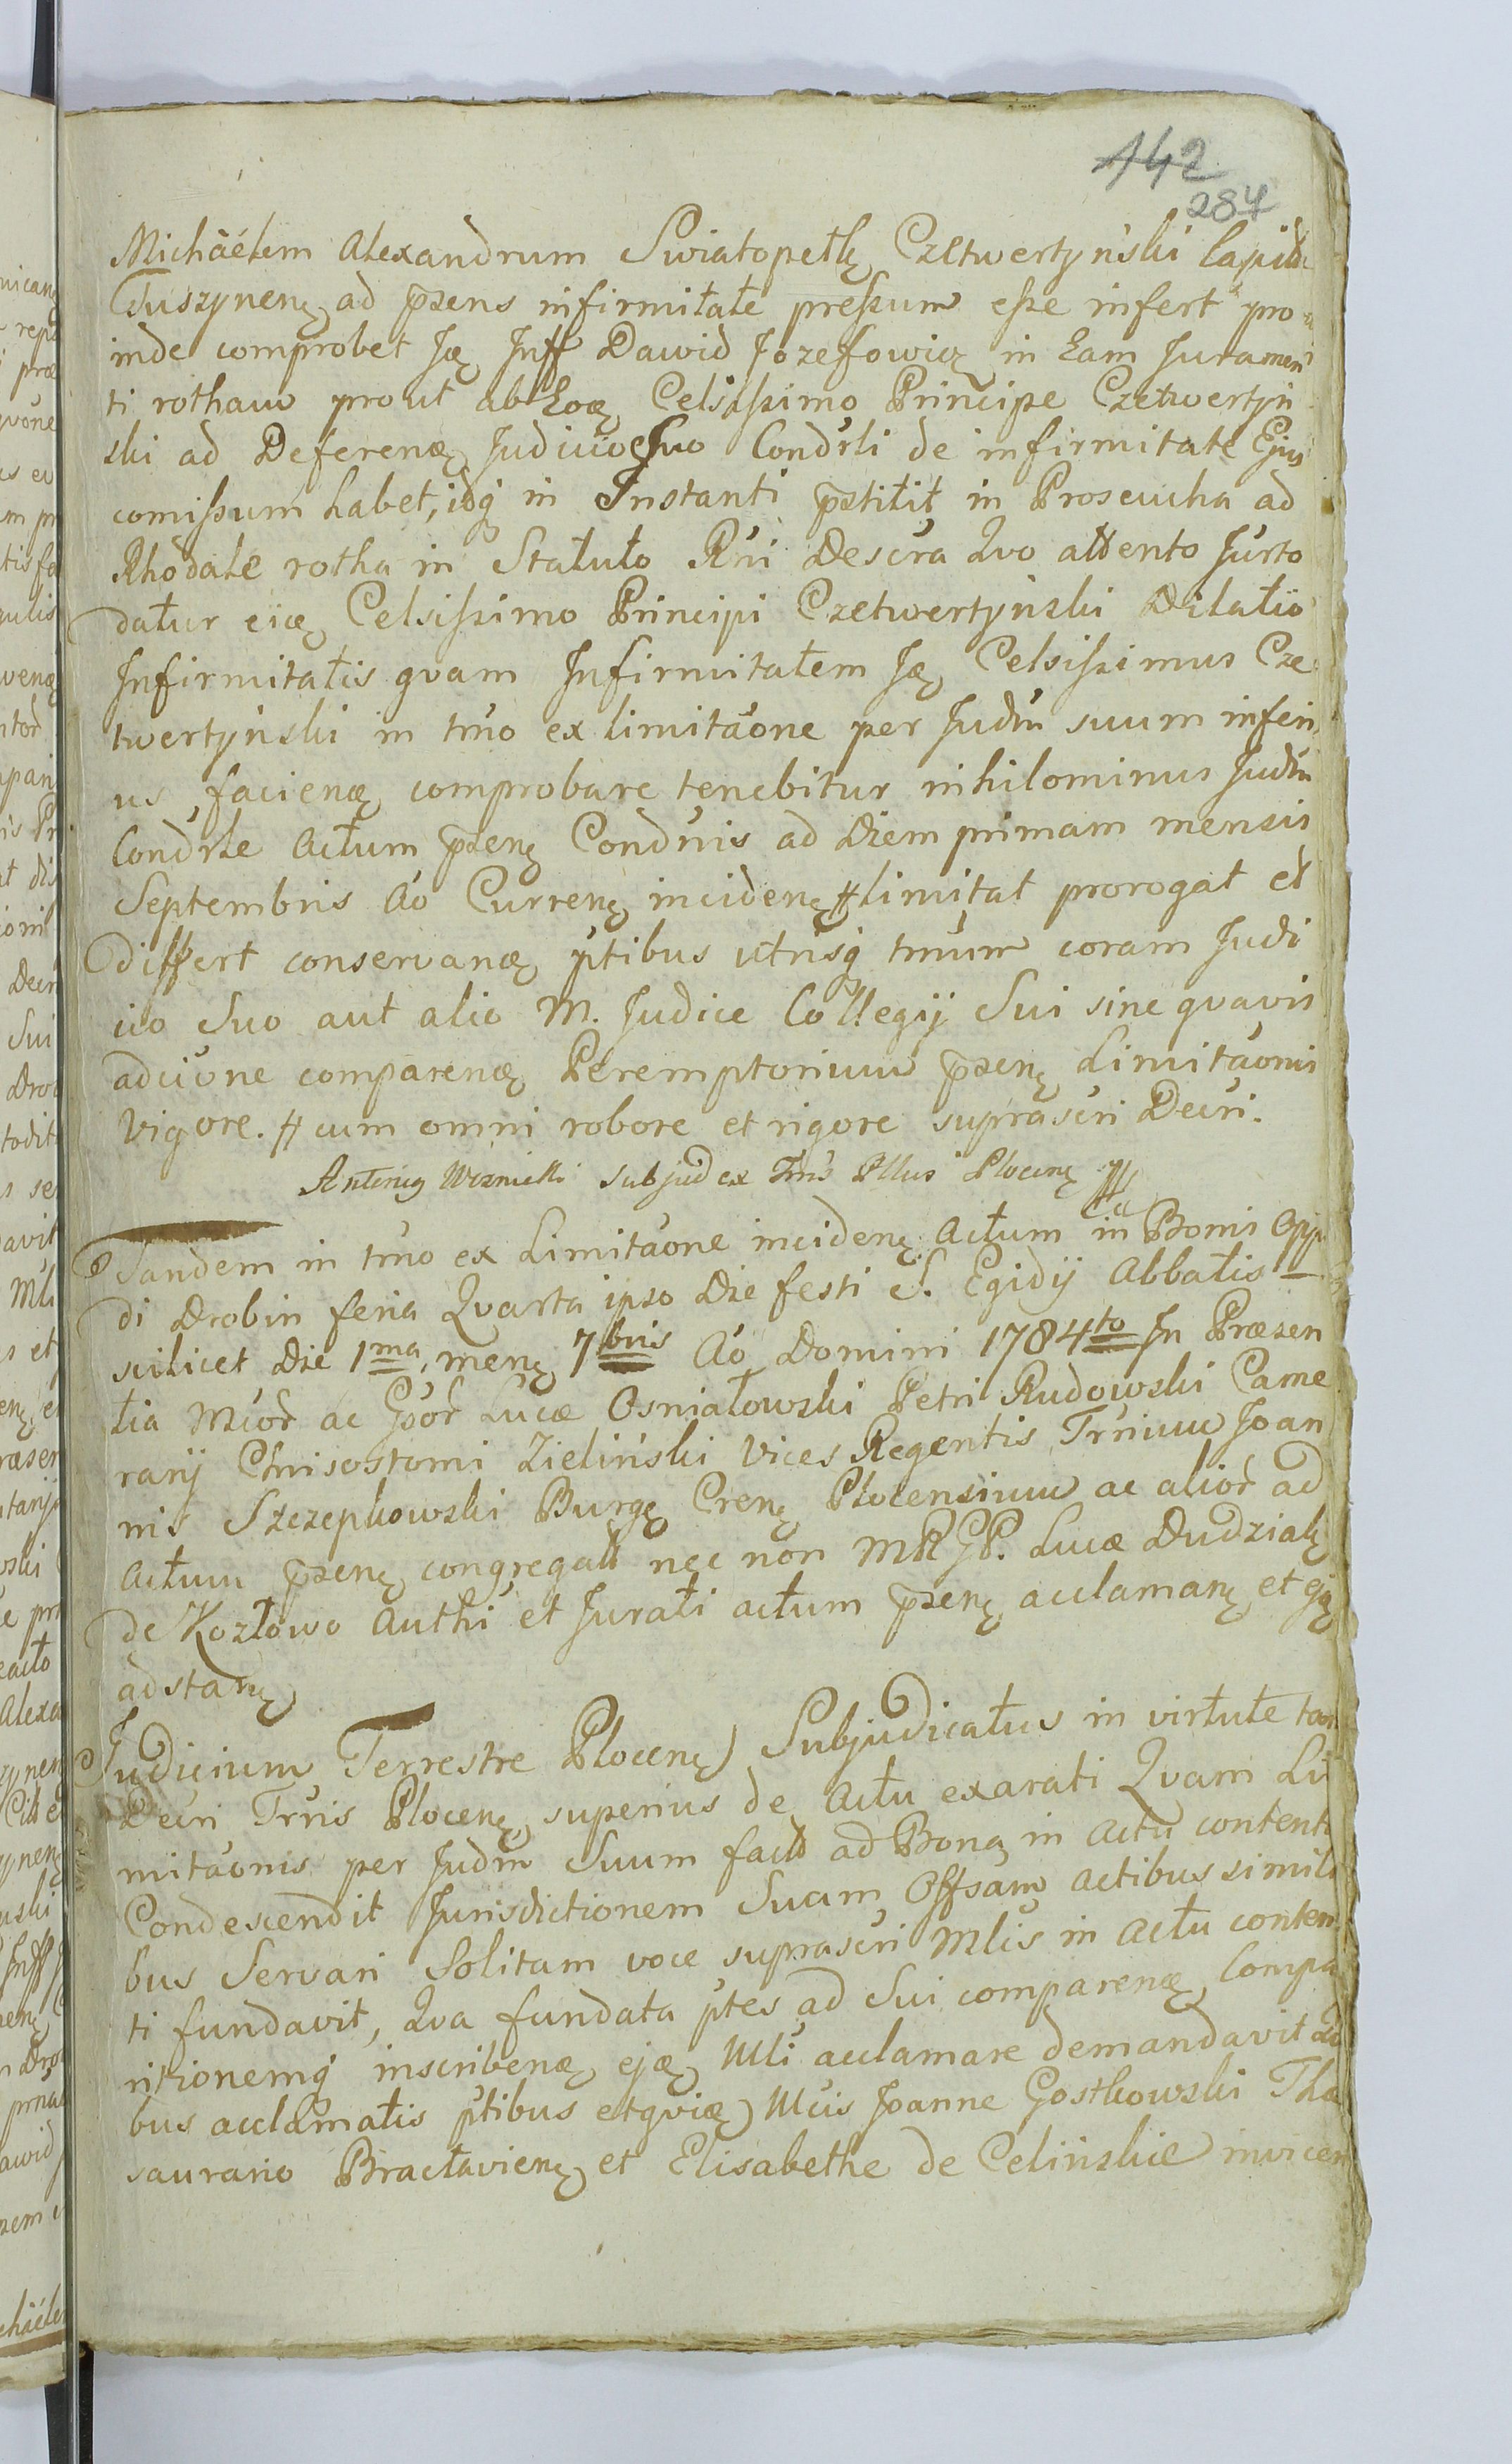 142
287
Michäélem Alexandrum Swiatopełk Czetwertynski Capit
Tuszynenę ad pzens infirmitate preſsum eſse infert pro
inde comprobet Ję Inff Dawid Jozeffowicz in Eam Juramen
ti rotham prout ab Eoę Celsiſsimo Principe Czetwertyń
ski ad Deferenę Judicio Suo Condrli de infirmitate Ejus
comiſsum habet, idq́ in Instanti pstitit in Prosecuha ad
Rhodale rotha in Statuto Rńi Descra Qvo attento Jurto
datur eiię Celsiſsimo Principi Czetwertyński Dilatio
Infirmitatis qvam Infirmitatem Ję Celsiſsimus Cze
twertyński in tmo ex limitaóne per Judm suum inferi
us facienę comprobare tenebitur nihilominus Judm
Condrle Actum pzenę Condnis ad Diem primam mensis
Septembris Aó Currenę incidenę # limitat prorogat et
differt conservanę ptibus utrisq́ tmum coram Judi
cio Suo aut alio M. Judice Collegij Sui sine qvavis
adcione comparenę Peremptorium pzenę Limitaónis
Vigore. # cum omni robore et rigore suprascri Decri.
Antonius Woznicki Subjudex Trris Pllus Plocenę
Tandem in tmo ex Limitaóne incidenę Actum in Bonis Oppi
di Drobin feria Qvarta ipso Die festi S. Egidij Abbatis –
scilicet Die 1ma, menę 7bris Aó Domini 1784to In Præsen
tia Mcor ac Gor Lucæ Osniałowski Petri Rudowski Came
rarij Chrisostomi Zieliński Vices Regentis Trrium Joan
nis Szczepkowski Burgę Crenę Plocensium ac alior ad
Actum pzenę congregatt nec non MR GP. Lucæ Dudziak
de Kozłowo Authi et Jurati actum pzenę acclamanę et Ję
adstanę
Judicium Terrestre Plocenę Subjudicatus in virtute tam
Decri Trris Plocenę superius de Actu exarati Qvam Li
mitaónis per Judm Suum fact ad Bona in Actu contenta
Condescendit Jurisdictionem Suam Offsam actibus simili
bus Servari Solitam voce suprascri Mlis in Actu conten
ti fundavit, Qva fundata ptes ad Sui comparenę Compa
ritionemq́ inscribenę ejæ Mli acclamare demandavit Qvi
bus acclamatis ptibus etqviæ Mcis Joanne Gostkowski The
saurario Bractavienę et Elisabethe de Celińskie invicem